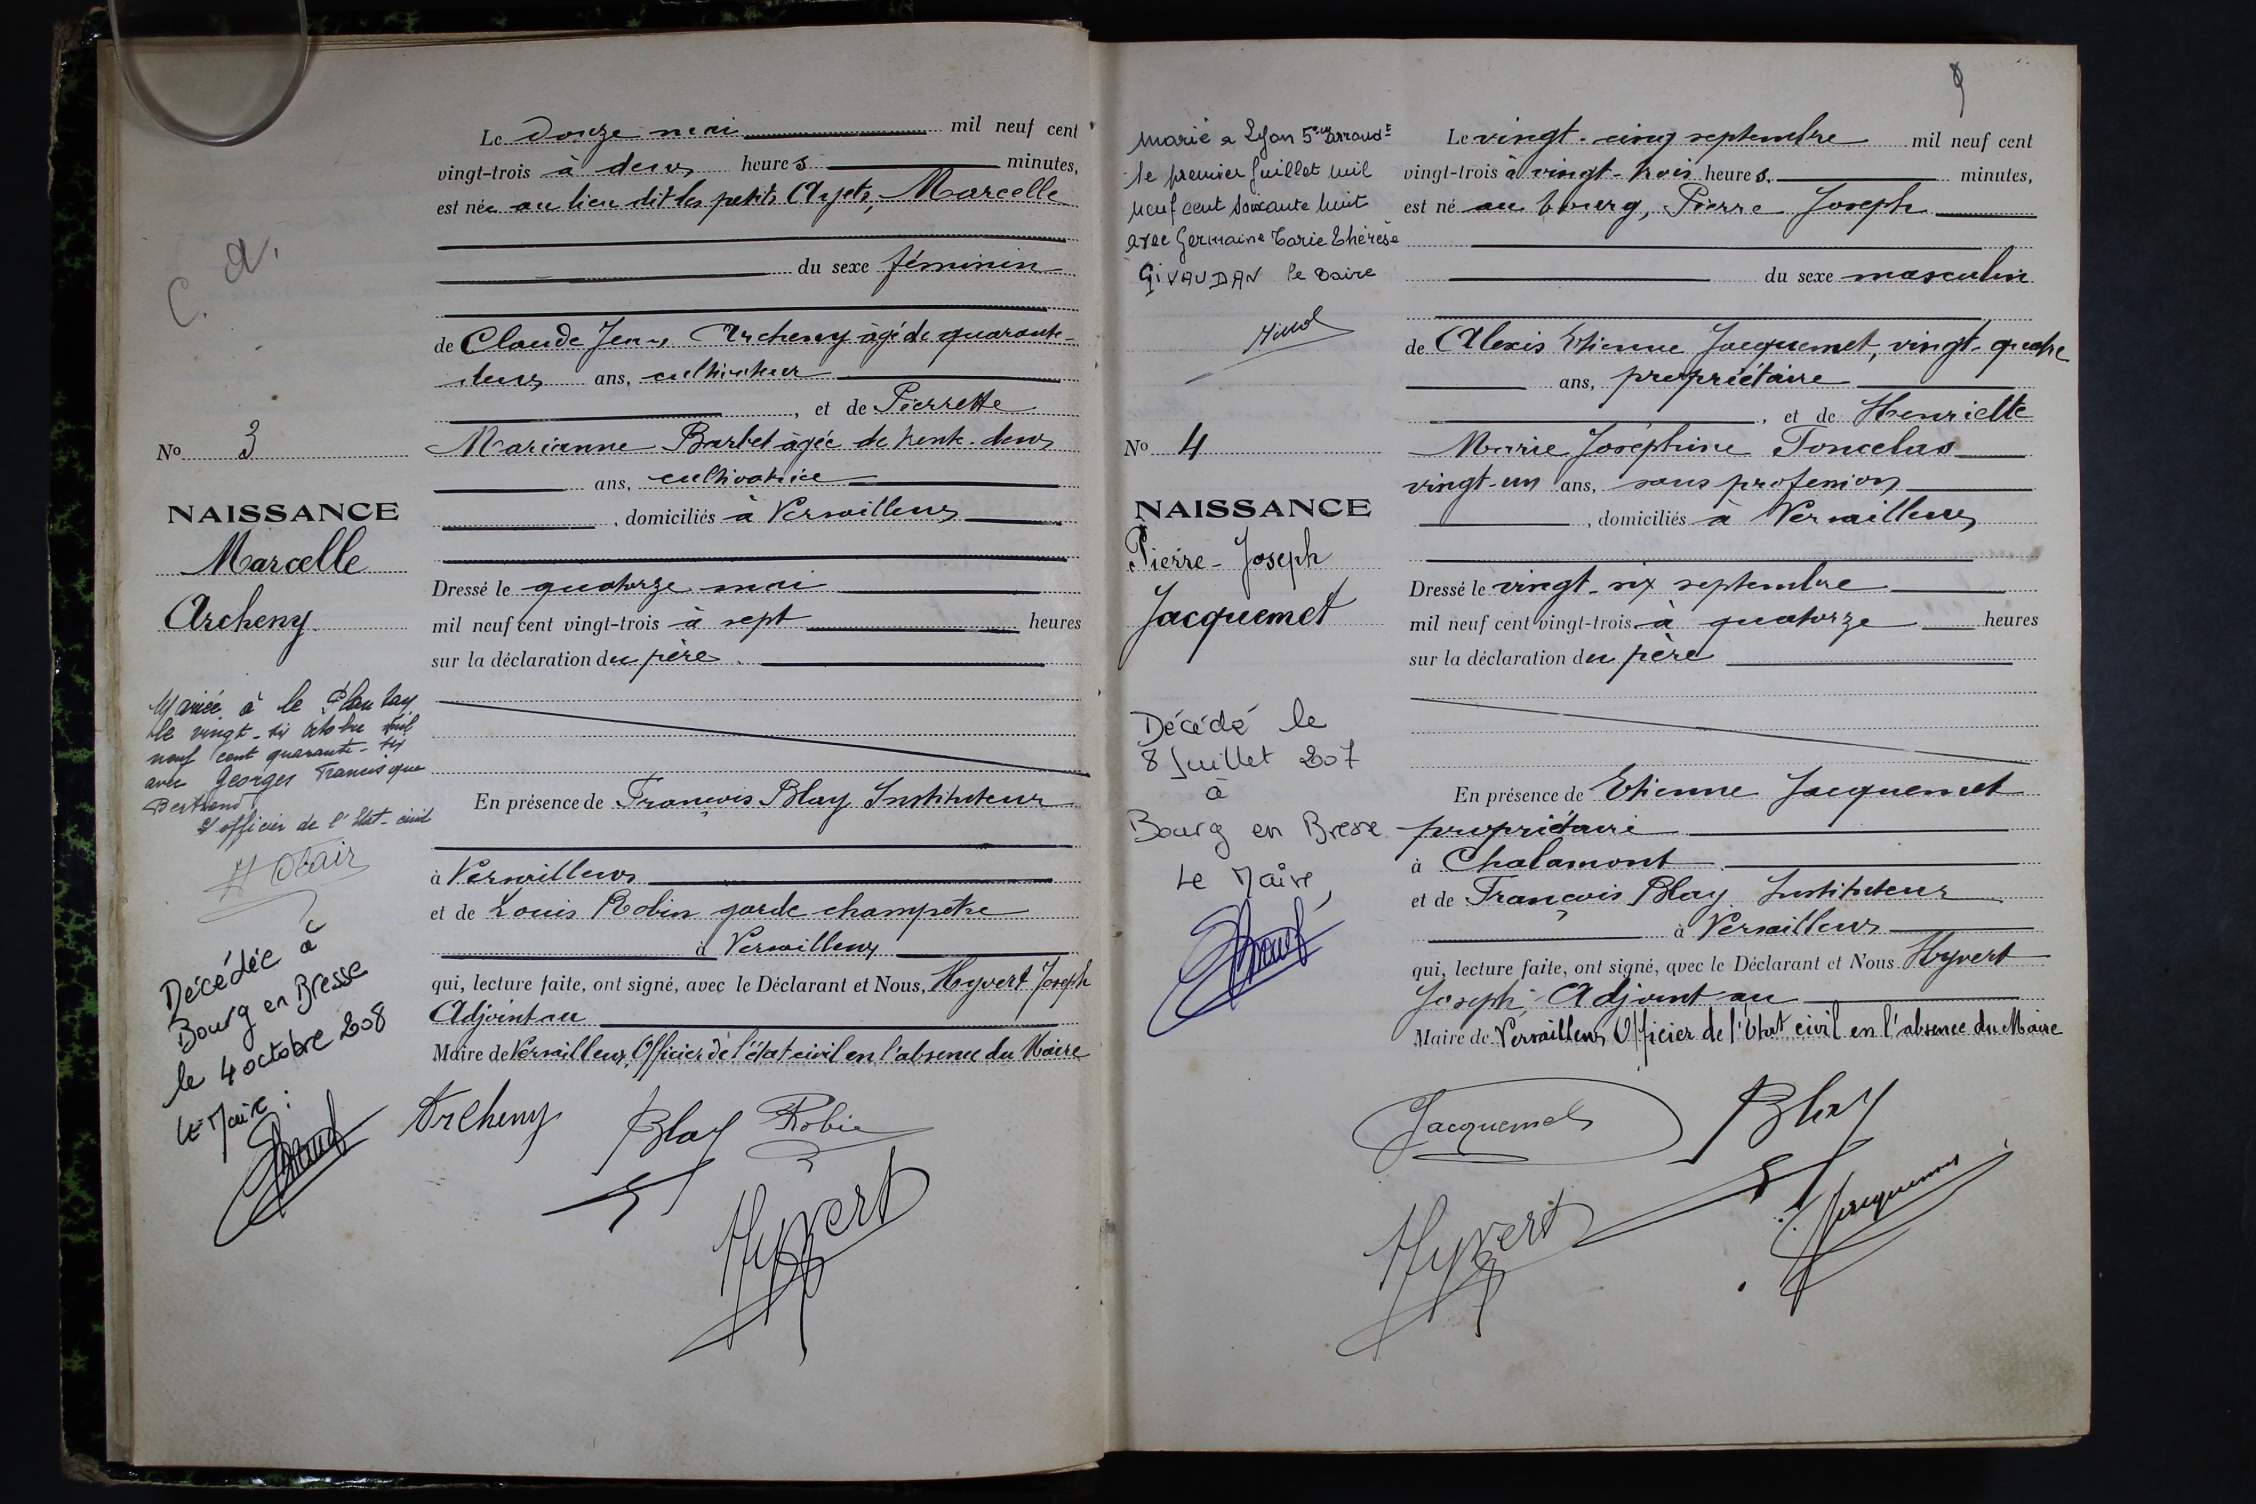 C. a.
Le douze mai mil neuf cent
vingt-trois à deux heures minutes,
est née au lieu dit les petits Agets, Marcelle
du sexe féminin
de Claude Jean Archeny âgé de quarante-
deux ans, cultivateur
, et de Pierrette
Marianne Barbet âgée de trente-deux
ans, cultivatrice
, domiciliés à Versailleux
Dressé le quatorze mai
mil neuf cent vingt-trois à sept heures
sur la déclaration du père
En présence de François Blay Instituteur
à Versailleux
et de Louis Robin garde champêtre
à Versailleux
qui, lecture faite, ont signé, avec le Déclarant et Nous, Hyvert Joseph
Adjoint au
Maire de Versailleux, Officier de l'état civil en l'absence du Maire
Archeny Blay Robin
Hyvert
No 3
NAISSANCE
Marcelle
Archeny
Mariée à le Plantay
le vingt-six octobre mil
neuf cent quarante-six
avec Georges Francisque
Bertrand
L'officier de l'Etat-civil
Décédée à
Bourg en Bresse
le 4 octobre 2008
Le Maire :
9
Marié à Lyon 5eme arrondt
le premier Juillet mil
neuf cent soixante huit
avec Germaine Marie Thérèse
GIVAUDAN le Maire
No 4
NAISSANCE
Pierre-Joseph
Jacquemet
Décédé le
8 Juillet 2007
à
Bourg en Bresse
Le Maire,
Le vingt-cinq septembre mil neuf cent
vingt-trois à vingt-trois heures, minutes,
est né au bourg, Pierre Joseph
du sexe masculin
de Alexis Etienne Jacquemet, vingt-quatre
ans, propriétaire
, et de Henriette
Marie Joséphine Poncelas
vingt-un ans, sans profession
, domiciliés à Versailleux
Dressé le vingt-six septembre
mil neuf cent vingt-trois à quatorze heures
sur la déclaration du père
En présence de Etienne Jacquemet
propriétaire
à Chalamont
et de François Blay Instituteur
à Versailleux
qui, lecture faite, ont signé, avec le Déclarant et Nous Hyvert
Joseph, Adjoint au
Maire de Versailleux Officier de l'Etat civil en l'absence du Maire
Jacquemet Blay
Hyvert Jacquemet